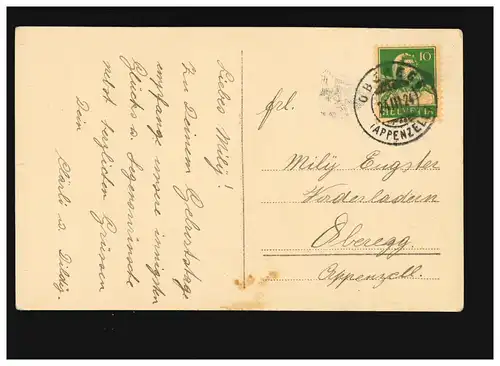 Liebes Milÿ!
Zu Deinem Geburtstage
empfange unsere innigsten
Glücks u. Segenswünsche
nebst herzlichen Grüssen
Dein
Clärli u.
frl.
Milÿ Eugster
Vorderladern
Oberegg.
Appenzell.
10
HELVETIA
OBEREGG
(APPENZELL)